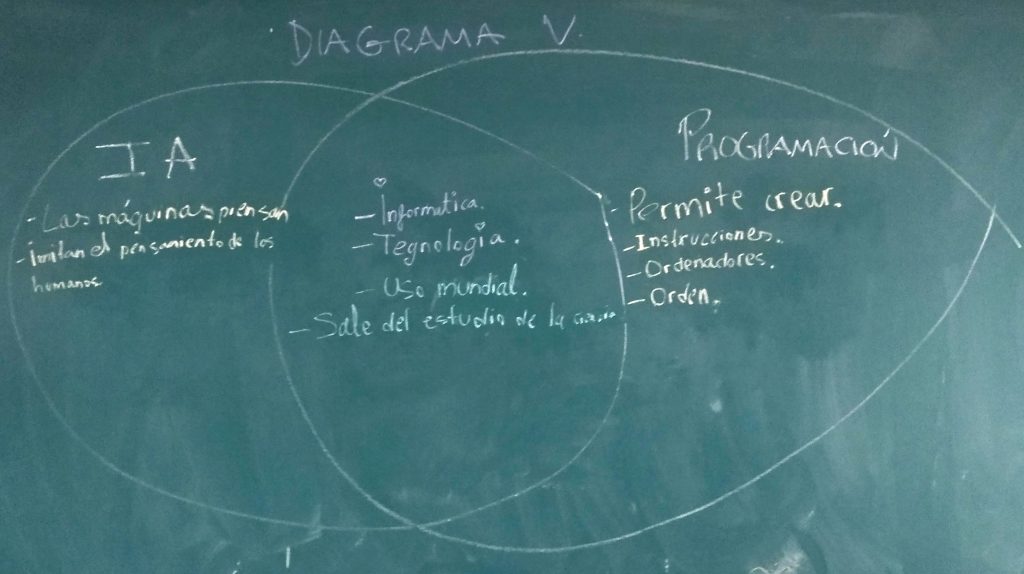 DIAGRAMA V.
IA
- Las máquinas piensan
- imitan el pensamiento de los
humanos
- Informatica.
- Tegnologia.
- Uso mundial.
- Sale del estudio de la
PROGRAMACIÓN
- Permite crear.
- Instrucciones.
- Ordenadores.
- Orden.